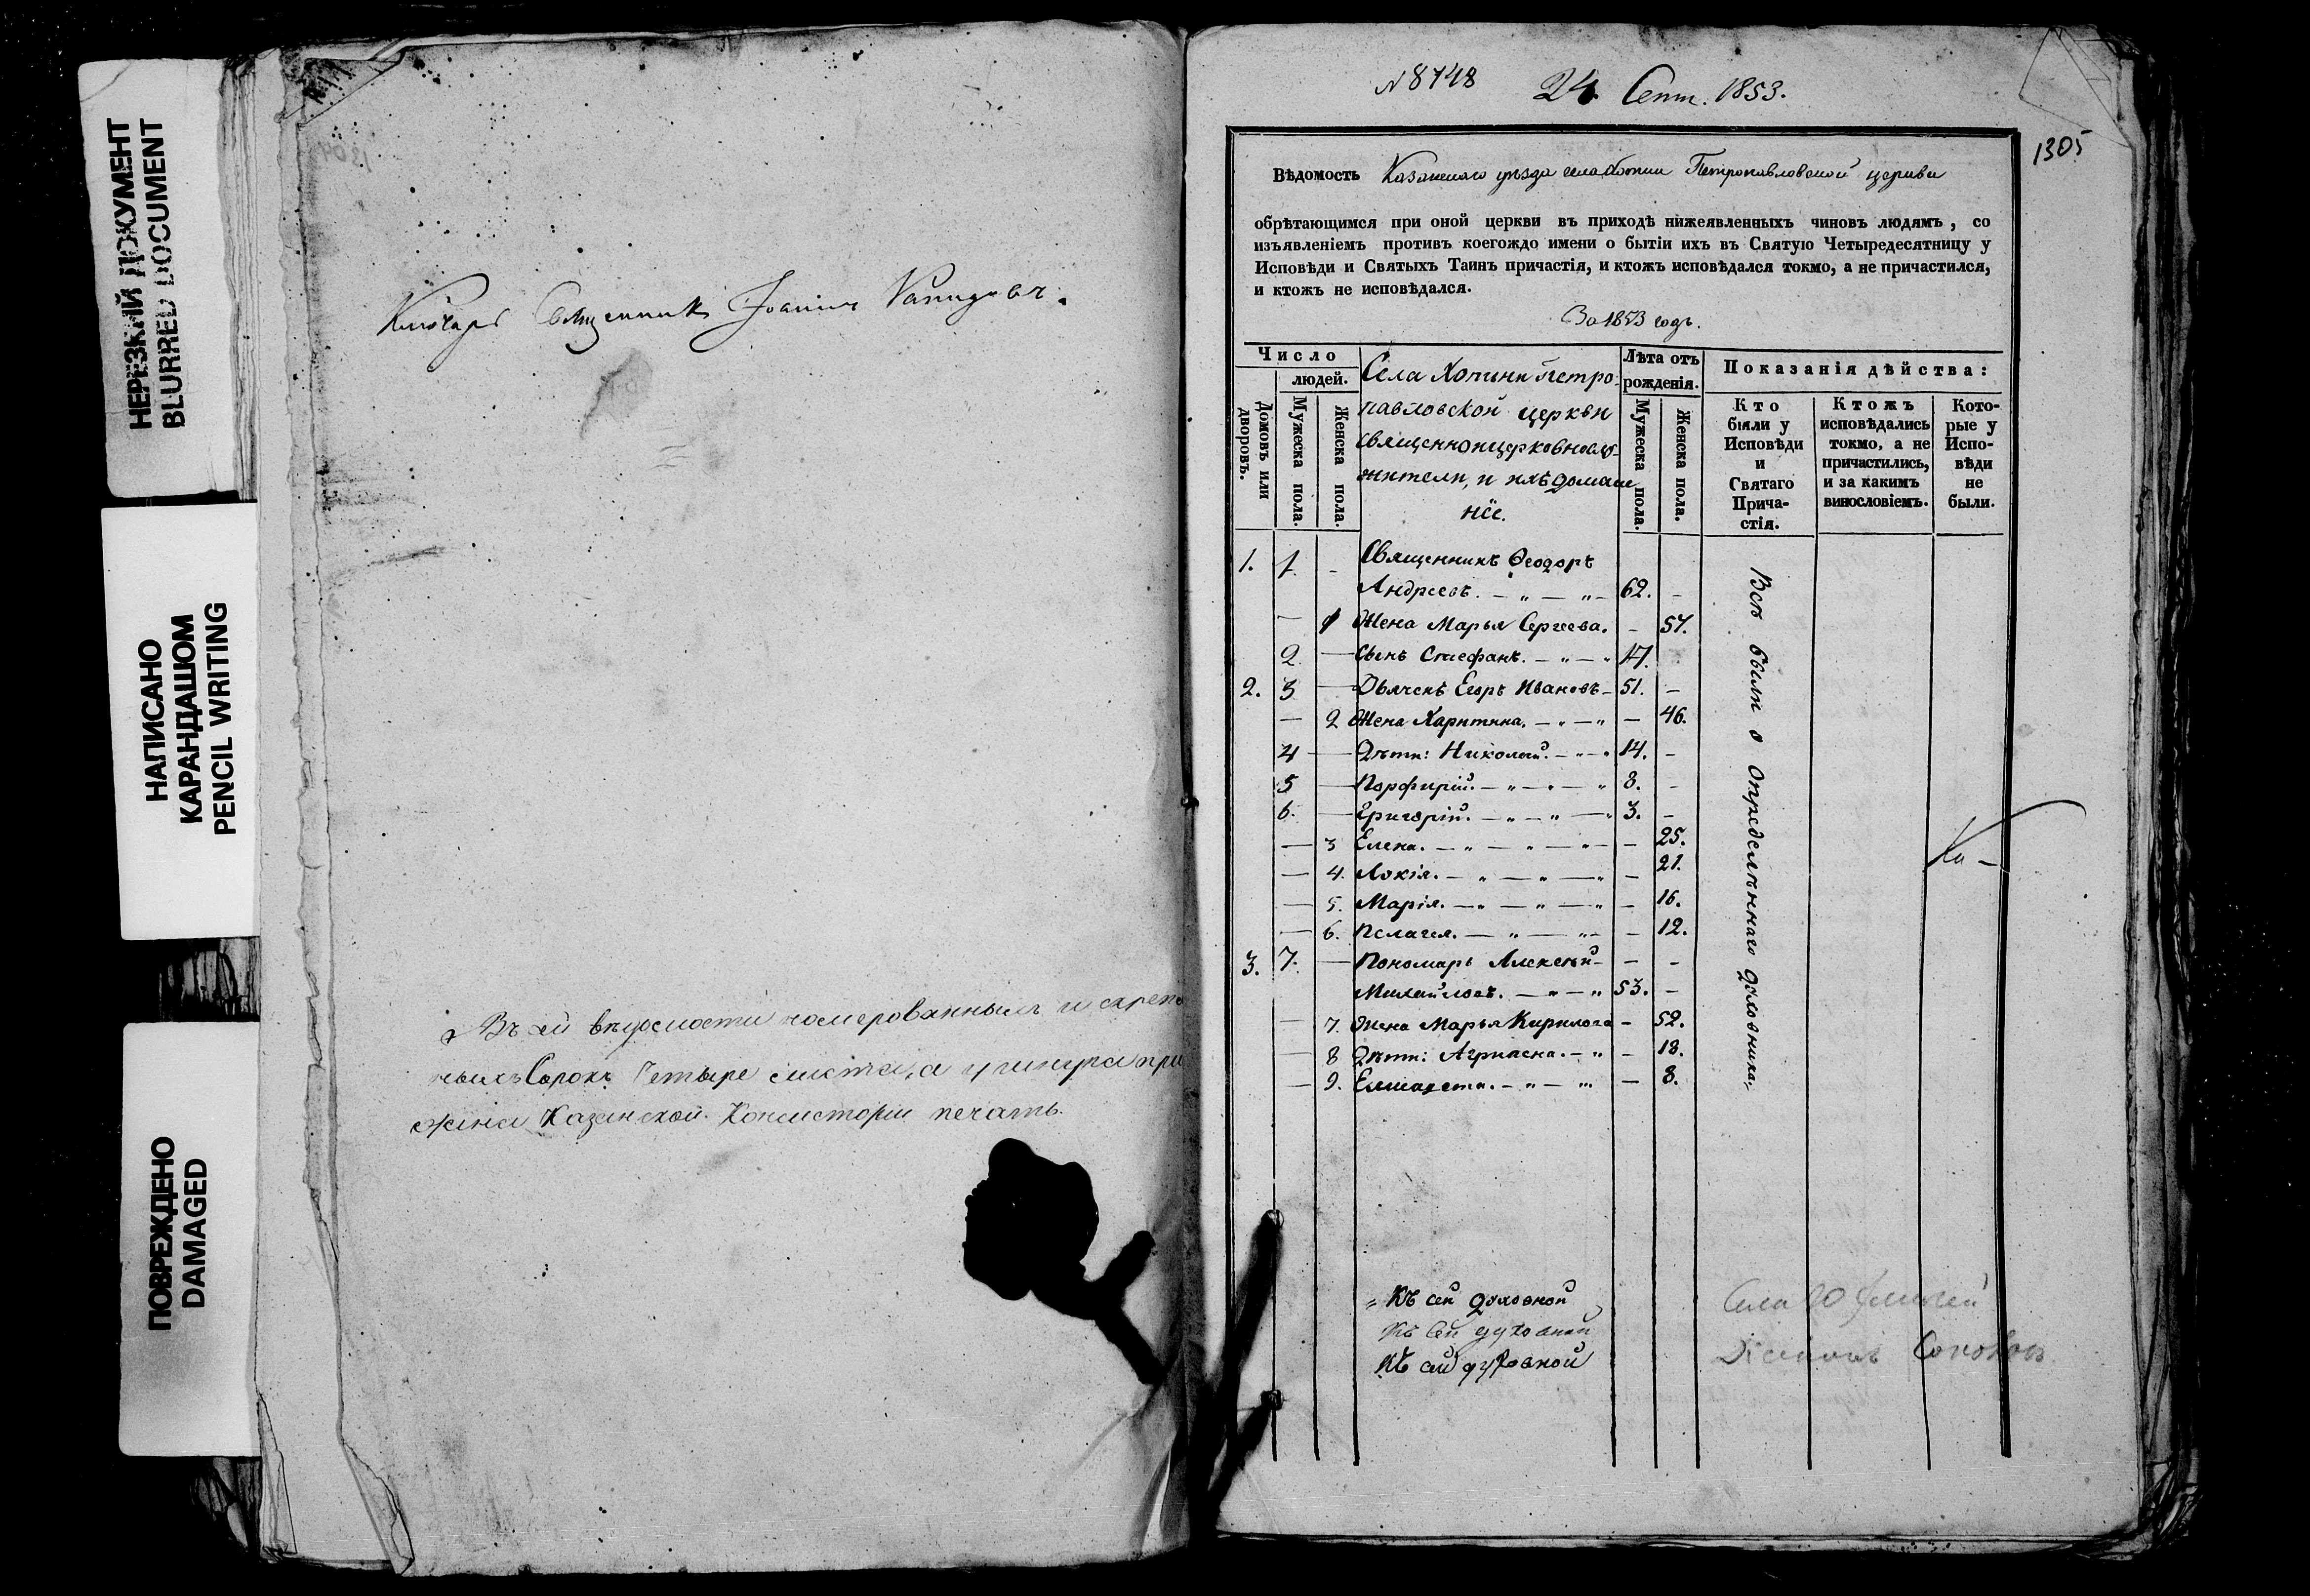 НЕРЕЗКИЙ ДОКУМЕНТ
BLURRED DOCUMENT
НАПИСАНО
КАРАНДАШОМ
PENCIL WRITING
ПОВРЕЖДЕНО
DAMAGED
Ключарь Священникъ Іоаннъ
Въ сей вѣдомости номерованныхъ и скрепл
ныхъ Сорокъ Четыре листа, а у шнура при
жена Казанской Консисторіи печать.
№ 8748 24 Сент. 1853.
1305
Вѣдомость Казанскаго уѣзда села Хотни Петропавловской церкви
обрѣтающимся при оной церкви въ приходѣ нижеявленныхъ чиновъ людямъ, со
изъявленіемъ противъ коегождо имени о бытіи ихъ въ Святую Четыредесятницу у
Исповѣди и Святыхъ Таинъ причастія, и ктожъ исповѣдался токмо, а не причастился,
и ктожъ не исповѣдался.
За 1853 годъ.
Число
людей.
Домовъ или дворовъ.
Мужеска пола.
Женска пола.
Села Хотни Петро-
павловской церкви
священноцерковнослу-
жители, и ихъ домаш
ніе.
Лѣта отъ
рожденія.
Мужеска пола.
Женска пола.
Показанія дѣйства:
Кто
были у
Исповѣди
и
Святаго
Прича-
стія.
Ктожъ
исповѣдались
токмо, а не
причастились,
и за какимъ
винословіемъ.
Кото-
рые у
Испо-
вѣди
не
были.
1. 1. - Священникъ Ѳеодоръ
Андреевъ. — " — " — 62. -
— 1 Жена Марья Сергеева. - 57.
2. — Сынъ Стефанъ. — " — " 17. -
2. 3 — Дьячекъ Егоръ Ивановъ — 51. —
— 2 Жена Харитина. — " — " — 46.
4 — Дѣти: Николай. — " — " 14. -
5 — Порфирій. — " — " — " 8. -
6. — Григорій. — " — " — " 3. -
— 3 Елена. — " — " — " — 25.
— 4. Лукія. — " — " — " — 21.
— 5. Марія. — " — " — " — 16.
— 6. Пелагея. — " — " — — 12.
3. 7. — Пономарь Алексѣй — — -
Михайловъ. — " — " 53. —
— 7. Жена Марья Кирилова — 52.
— 8 Дѣти: Агрипена. — " — 18.
— 9. Елисавета. — " — " — 8.
Всѣ были у опредѣленнаго духовника
Къ сей духовной
Къ сей духовной
Къ сей духовной